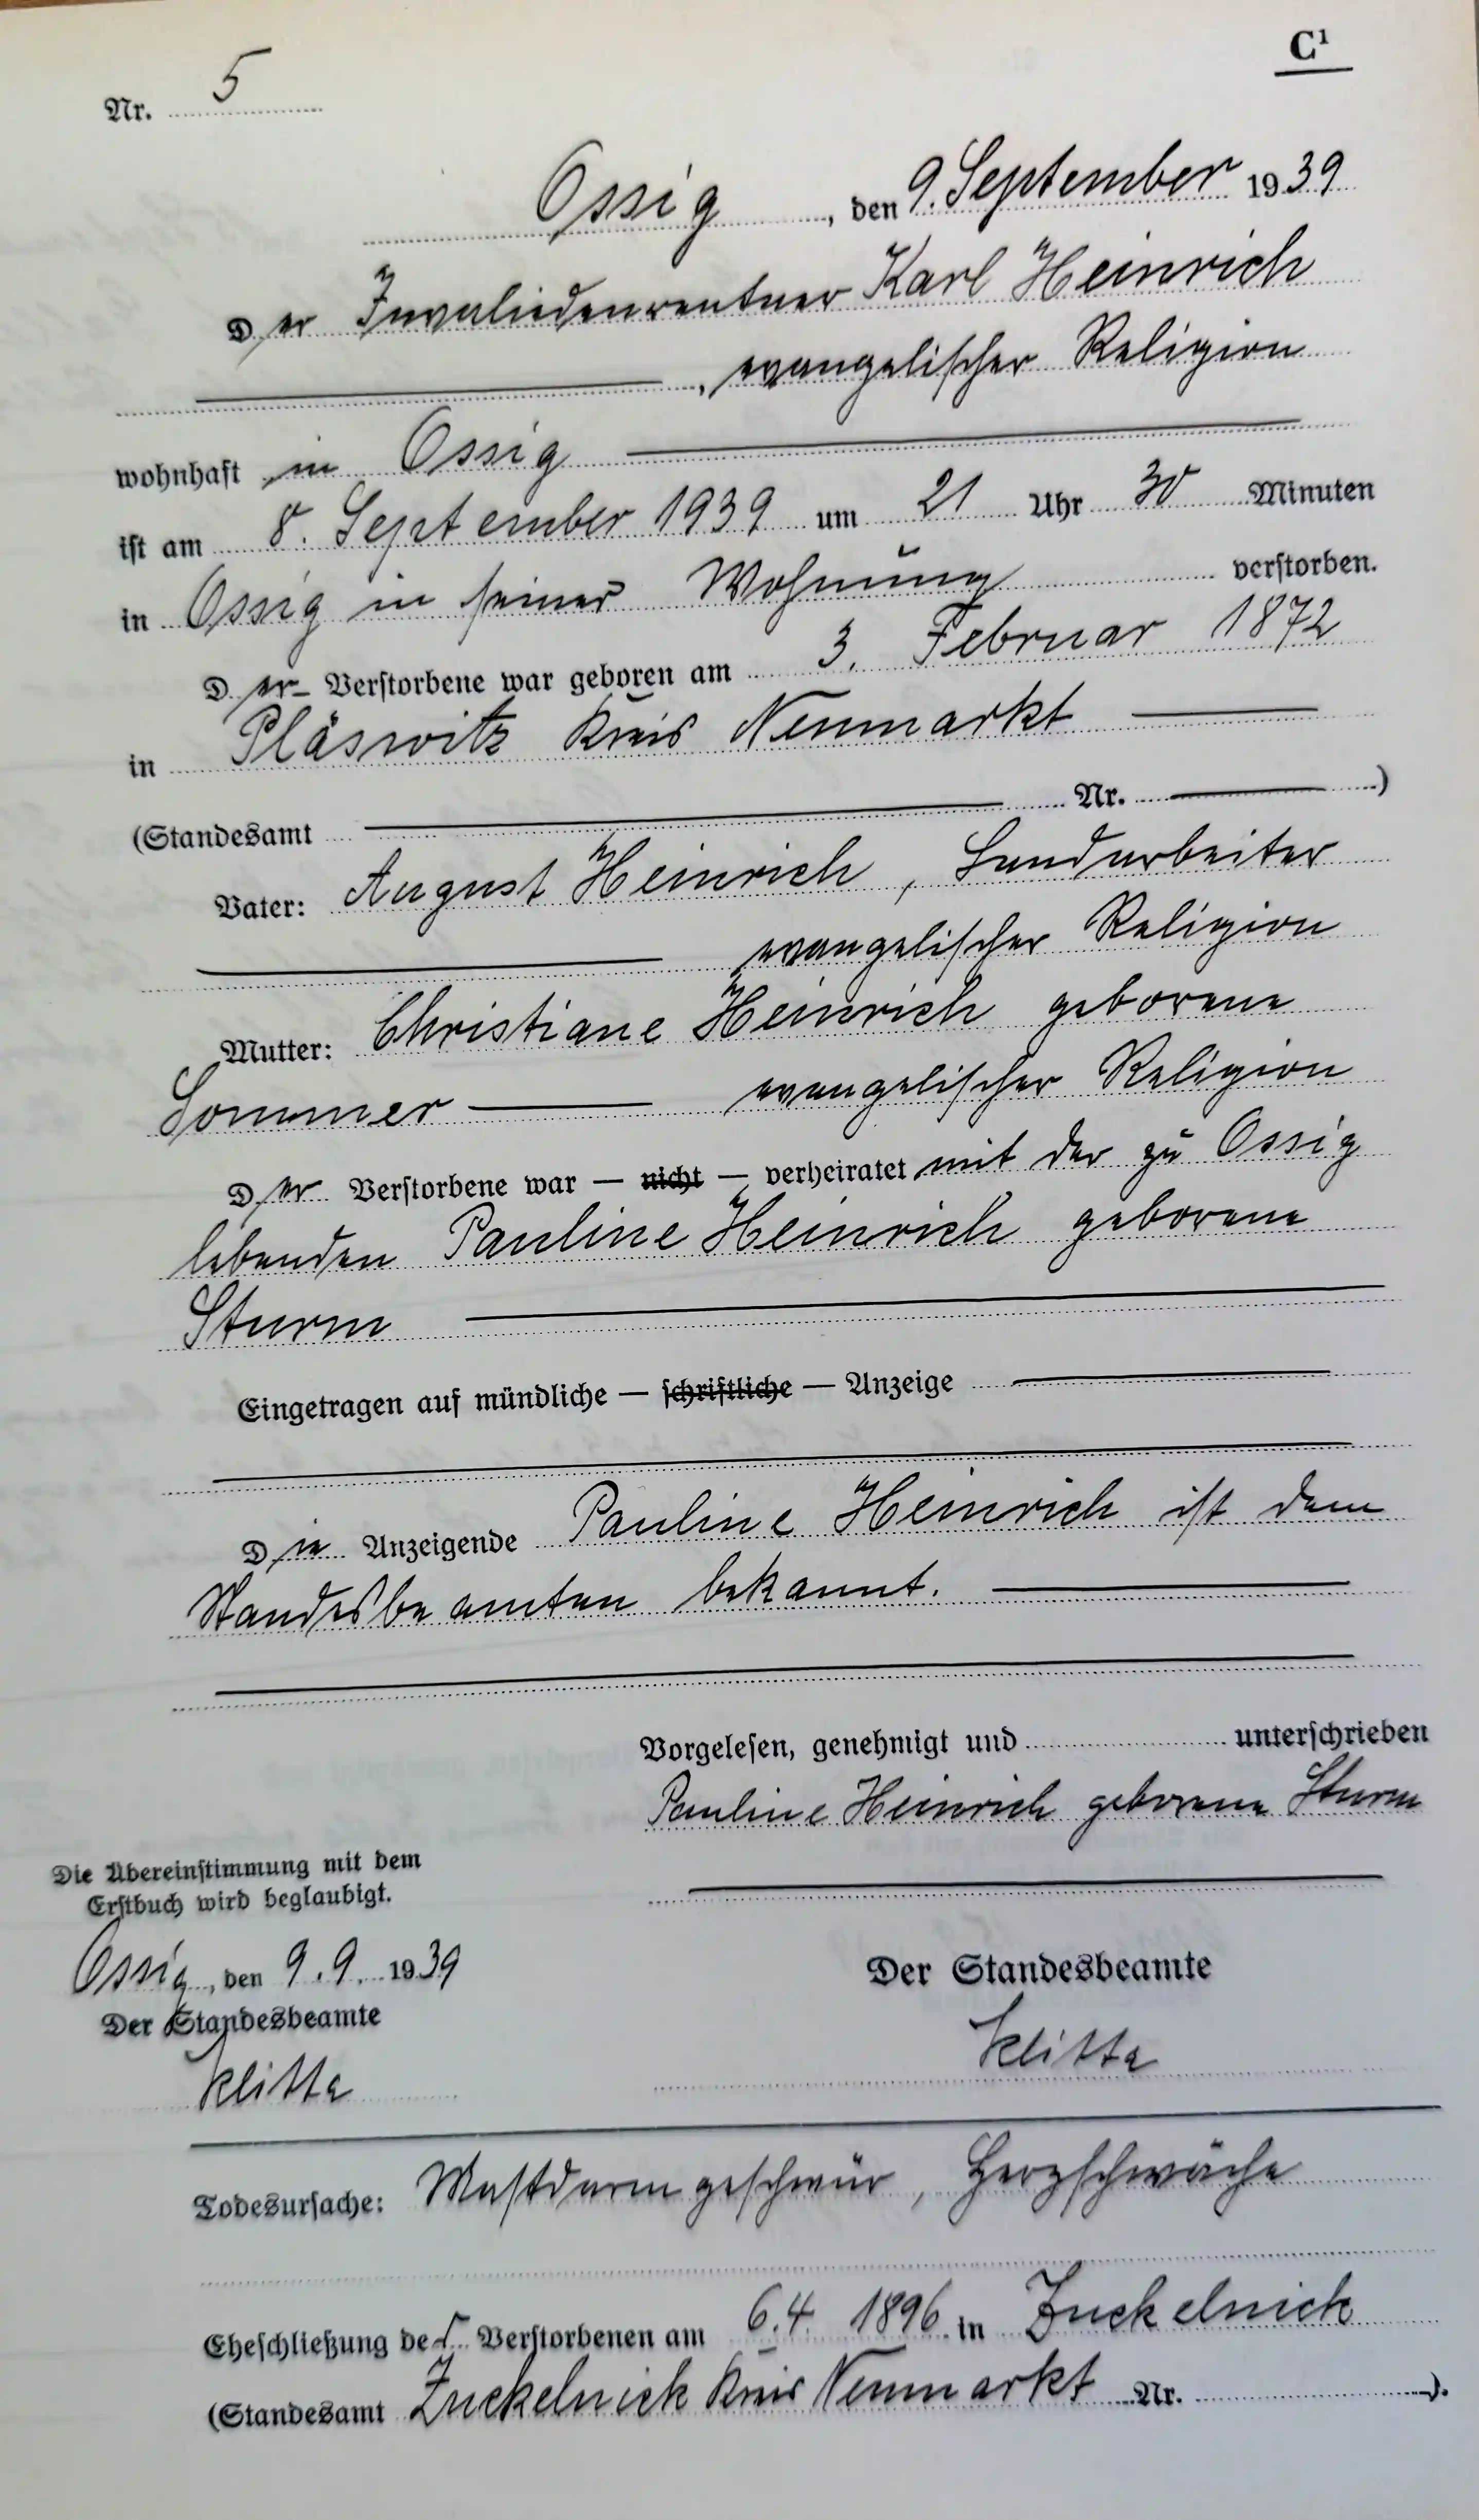 C¹
Nr. 5
Ossig, den 9. September 1939
Der Invaliedenrentner Karl Heinrich
, evangelischer Religion
wohnhaft in Ossig
ist am 8. September 1939 um 21 Uhr 30 Minuten
in Ossig in seiner Wohnung verstorben.
Der Verstorbene war geboren am 3. Februar 1872
in Pläswitz Kreis Neumarkt
(Standesamt Nr. )
Vater: August Heinrich, Landarbeiter
evangelischer Religion
Mutter: Christiane Heinrich geborene
Sommer evangelischer Religion
Der Verstorbene war — nicht — verheiratet mit der zu Ossig
lebenden Pauline Heinrich geborene
Sturm
Eingetragen auf mündliche — schriftliche — Anzeige
Die Anzeigende Pauline Heinrich ist dem
Standesbeamten bekannt.
Vorgelesen, genehmigt und unterschrieben
Pauline Heinrich geborene Sturm
Die Übereinstimmung mit dem
Erstbuch wird beglaubigt.
Ossig, den 9. 9. 1939
Der Standesbeamte
Klitta
Der Standesbeamte
Klitta
Todesursache: Mastdarmgeschwür, Herzschwäche
Eheschließung des Verstorbenen am 6.4. 1896 in Zuckelnick
(Standesamt Zuckelnick Kreis Neumarkt Nr. ).